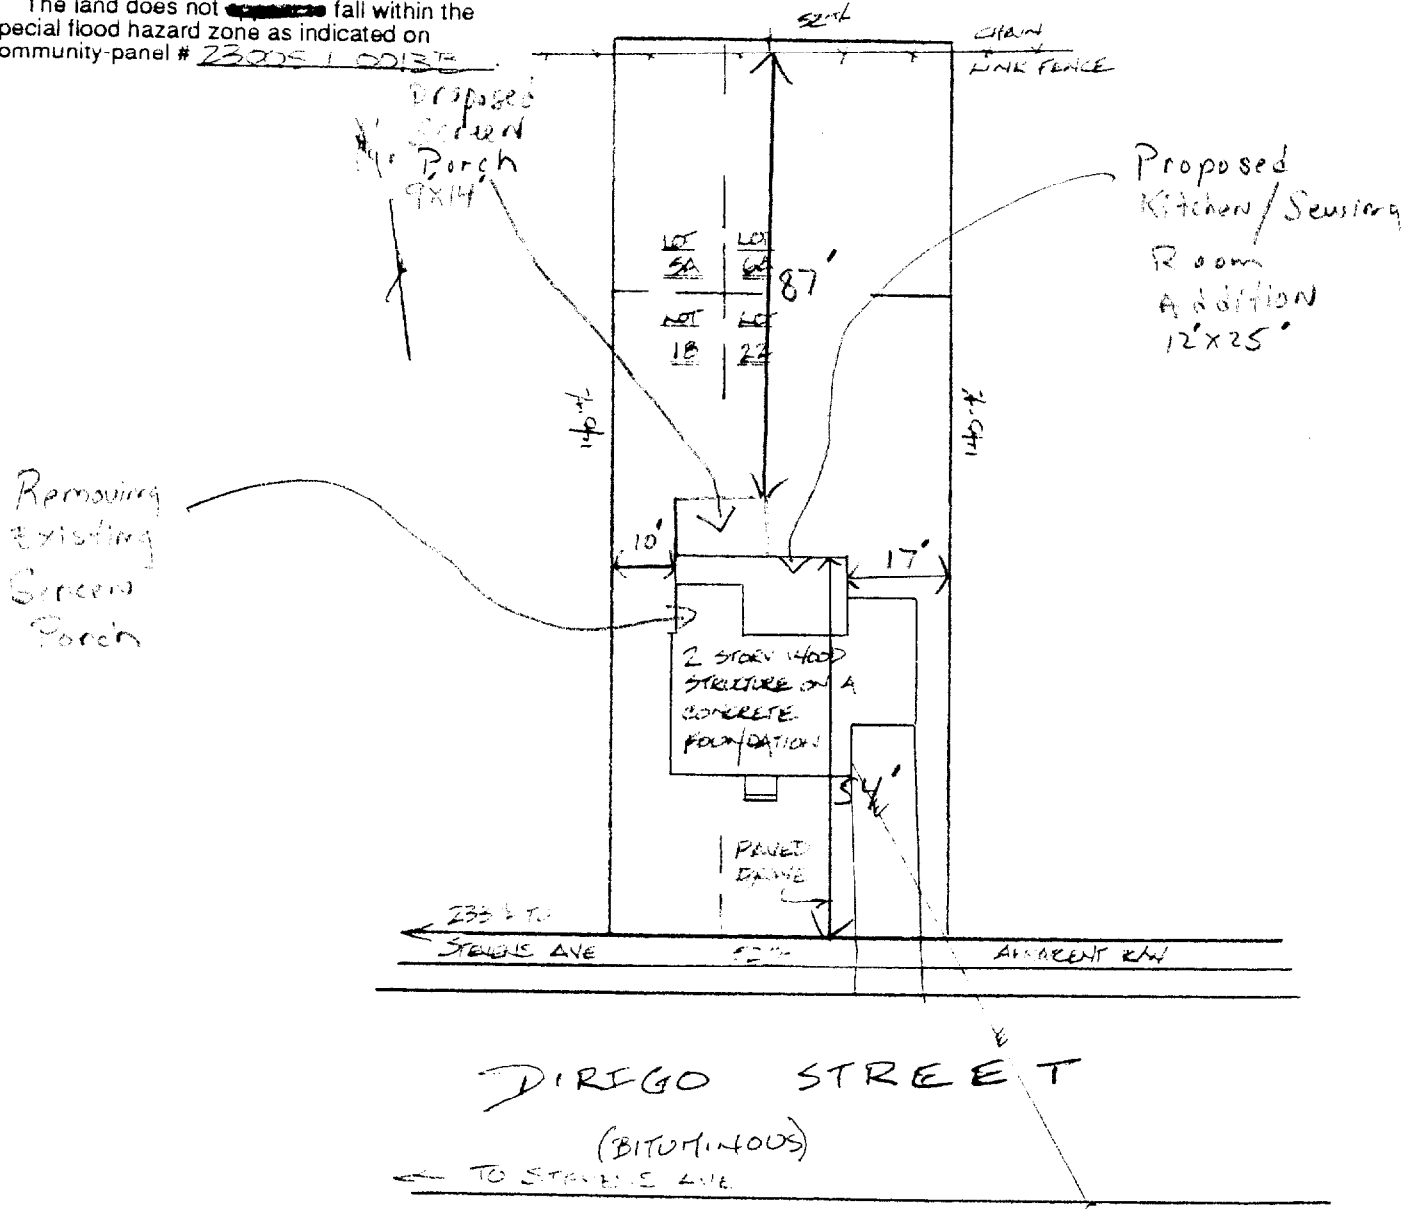 The land does not fall within the
pecial flood hazard zone as indicated on
ommunity-panel #
52'±
CHAIN
LINK FENCE
Proposed
Screen
Porch
9'x14'
Proposed
Kitchen/Sewing
Room
Addition
12'x25'
LOT
5A
LOT
87'
LOT
18
LOT
22
140'±
140'±
Removing
Existing
Screen
Porch
10'
17'
2 STORY WOOD
STRUCTURE ON A
CONCRETE
FOUNDATION
54'
PAVED
DRIVE
233'± TO
STEVENS AVE
52'±
APPARENT R/W
DIRIGO STREET
(BITUMINOUS)
TO STEVENS AVE